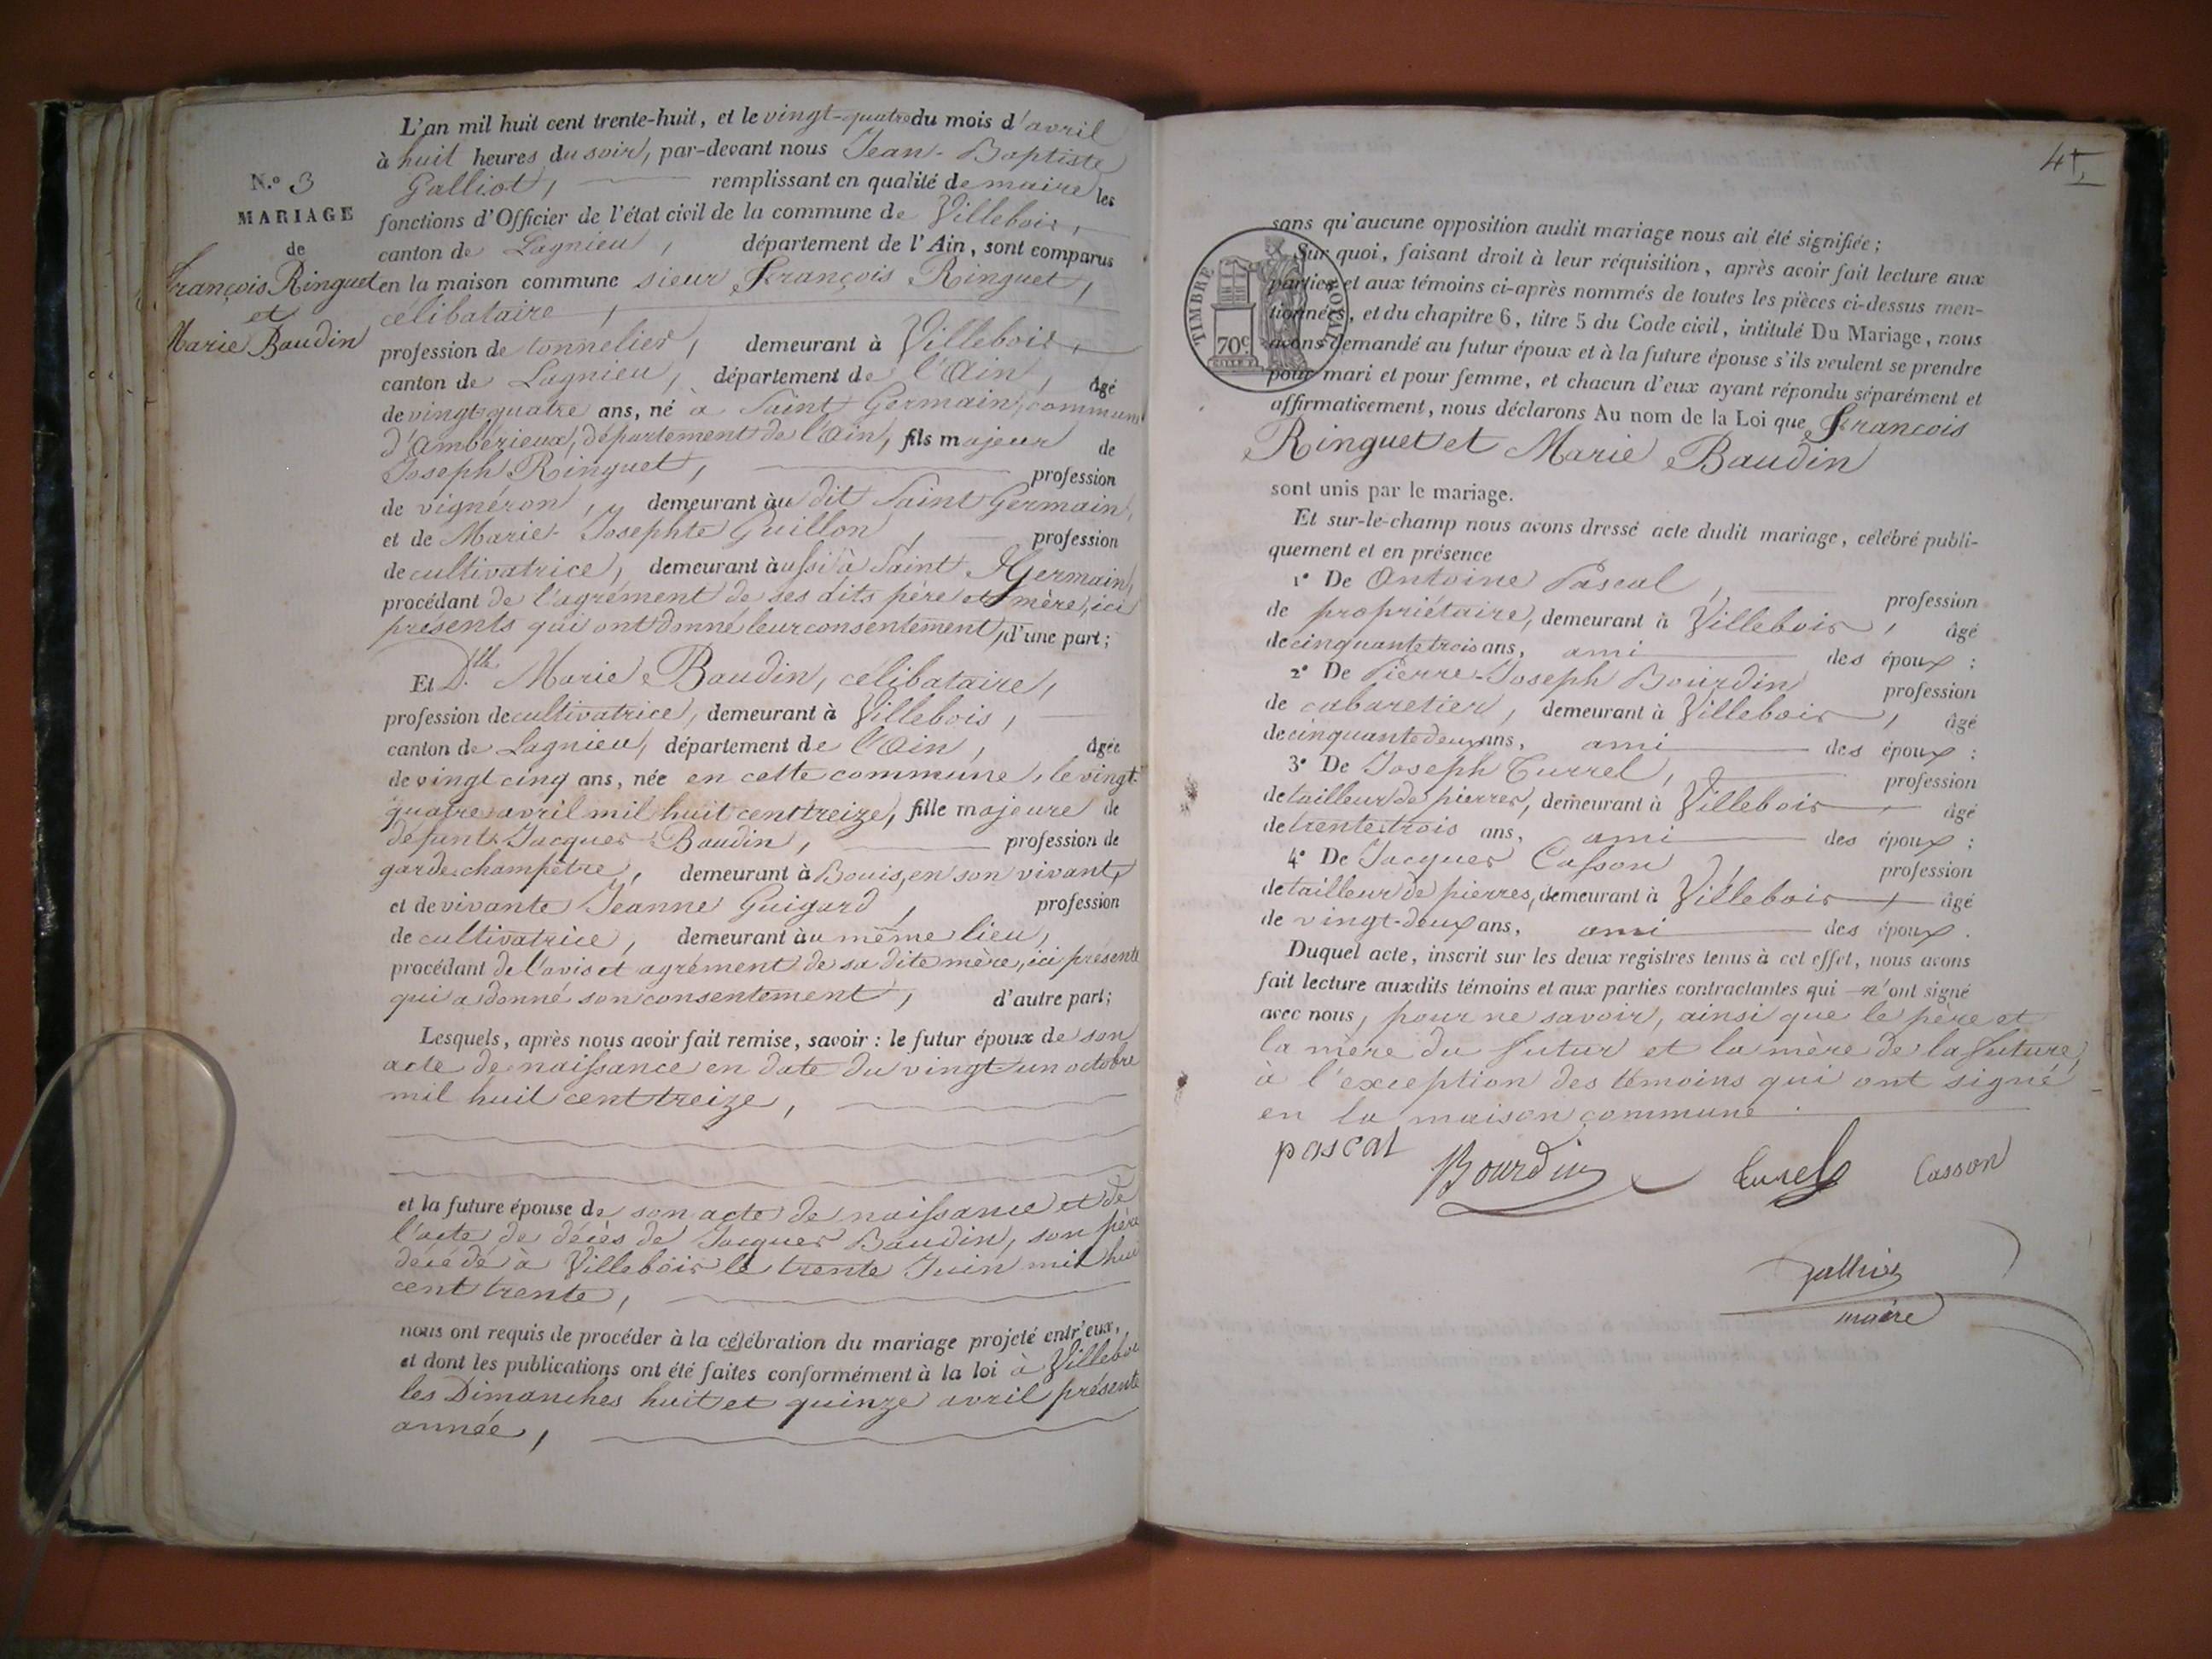 N.º 3
MARIAGE
de
François Ringuet
et
Marie Baudin
L'an mil huit cent trente-huit, et le vingt-quatre du mois d'avril
à huit heures du soir, par-devant nous Jean-Baptiste
Galliot, remplissant en qualité de maire les
fonctions d'Officier de l'état civil de la commune de Villebois,
canton de Lagnieu, département de l'Ain, sont comparus
en la maison commune sieur François Ringuet,
célibataire,
profession de tonnelier, demeurant à Villebois,
canton de Lagnieu, département de l'Ain, âgé
de vingt-quatre ans, né à Saint Germain, commune
d'Ambérieux, département de l'Ain, fils majeur de
Joseph Ringuet, profession
de vignéron, demeurant au dit Saint Germain,
et de Marie-Josephte Guillon, profession
de cultivatrice, demeurant aussi à Saint Germain,
procédant de l'agrément de ses dits père et mère, ici
présents qui ont donné leur consentement, d'une part;
Et Dlle Marie Baudin, célibataire,
profession de cultivatrice, demeurant à Villebois,
canton de Lagnieu, département de l'Ain, âgée
de vingt cinq ans, née en cette commune, le vingt-
quatre avril mil huit cent treize, fille majeure de
défunt Jacques Baudin, profession de
garde champêtre, demeurant à Bouis, en son vivant,
et de vivante Jeanne Guigard, profession
de cultivatrice, demeurant au même lieu,
procédant de l'avis et agrément de sa dite mère, ici présente
qui a donné son consentement, d'autre part;
Lesquels, après nous avoir fait remise, savoir : le futur époux de son
acte de naissance en date du vingt-un octobre
mil huit cent treize,
et la future épouse de son acte de naissance et de
l'acte de décès de Jacques Baudin, son père
décédé à Villebois le trente Juin mil hui
cent trente,
nous ont requis de procéder à la célébration du mariage projeté entr'eux,
et dont les publications ont été faites conformément à la loi à Villebois
les Dimanches huit et quinze avril présente
année,
TIMBRE ROYAL
70c
sans qu'aucune opposition audit mariage nous ait été signifiée;
Sur quoi, faisant droit à leur réquisition, après avoir fait lecture aux
parties et aux témoins ci-après nommés de toutes les pièces ci-dessus men-
tionnées, et du chapitre 6, titre 5 du Code civil, intitulé Du Mariage, nous
avons demandé au futur époux et à la future épouse s'ils veulent se prendre
pour mari et pour femme, et chacun d'eux ayant répondu séparément et
affirmativement, nous déclarons Au nom de la Loi que François
Ringuet et Marie Baudin
sont unis par le mariage.
Et sur-le-champ nous avons dressé acte dudit mariage, célébré publi-
quement et en présence
1º De Antoine Pascal, profession
de propriétaire, demeurant à Villebois, âgé
de cinquante trois ans, ami des époux :
2º De Pierre-Joseph Bourdin profession
de cabaretier, demeurant à Villebois, âgé
de cinquante deux ans, ami des époux :
3º De Joseph Currel, profession
de tailleur de pierres, demeurant à Villebois, âgé
de trente trois ans, ami des époux :
4º De Jacques Casson, profession
de tailleur de pierres, demeurant à Villebois, âgé
de vingt-deux ans, ami des époux.
Duquel acte, inscrit sur les deux registres tenus à cet effet, nous avons
fait lecture auxdits témoins et aux parties contractantes qui n'ont signé
avec nous, pour ne savoir, ainsi que le père et
la mère du futur et la mère de la future,
à l'exception des témoins qui ont signé
en la maison commune.
pascal Bourdin Curel Casson
Galliot
maire